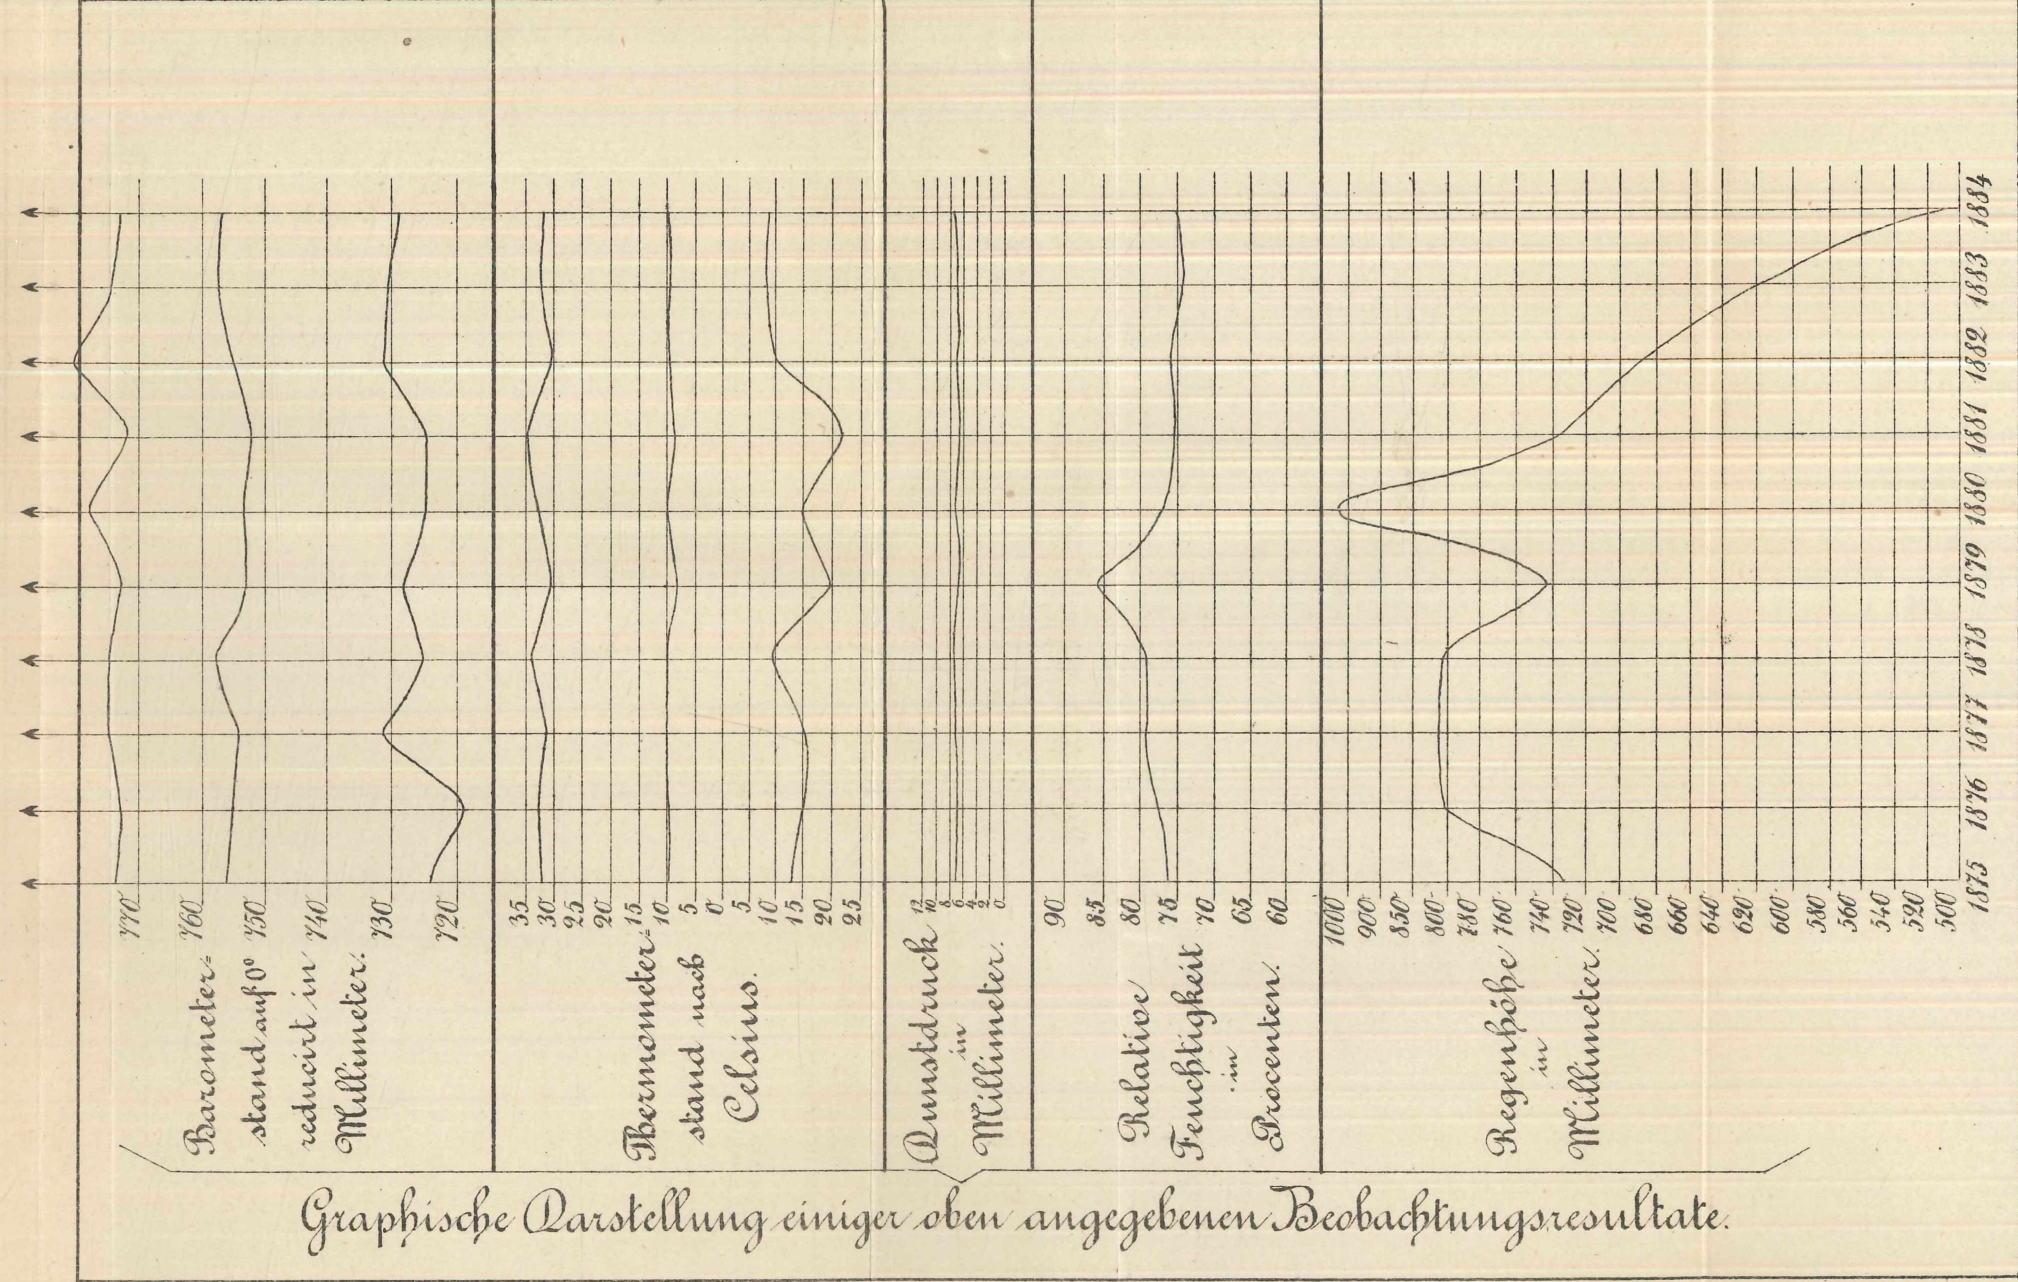 Barometer=
stand auf 0°
reducirt in
Millimeter.
770
760
750
740
730
720
Thermometer=
stand nach
Celsius.
35
30
25
20
15
10
5
0
5
10
15
20
25
Dunstdruck
in
Millimeter.
12
10
8
6
4
2
0
Relative
Feuchtigkeit
in
Procenten.
90
85
80
75
70
65
60
Regenhöhe
in
Millimeter.
1000
900
850
800
780
760
740
720
700
680
660
640
620
600
580
560
540
520
500
1875
1876
1877
1878
1879
1880
1881
1882
1883
1884
Graphische Darstellung einiger oben angegebenen Beobachtungsresultate.